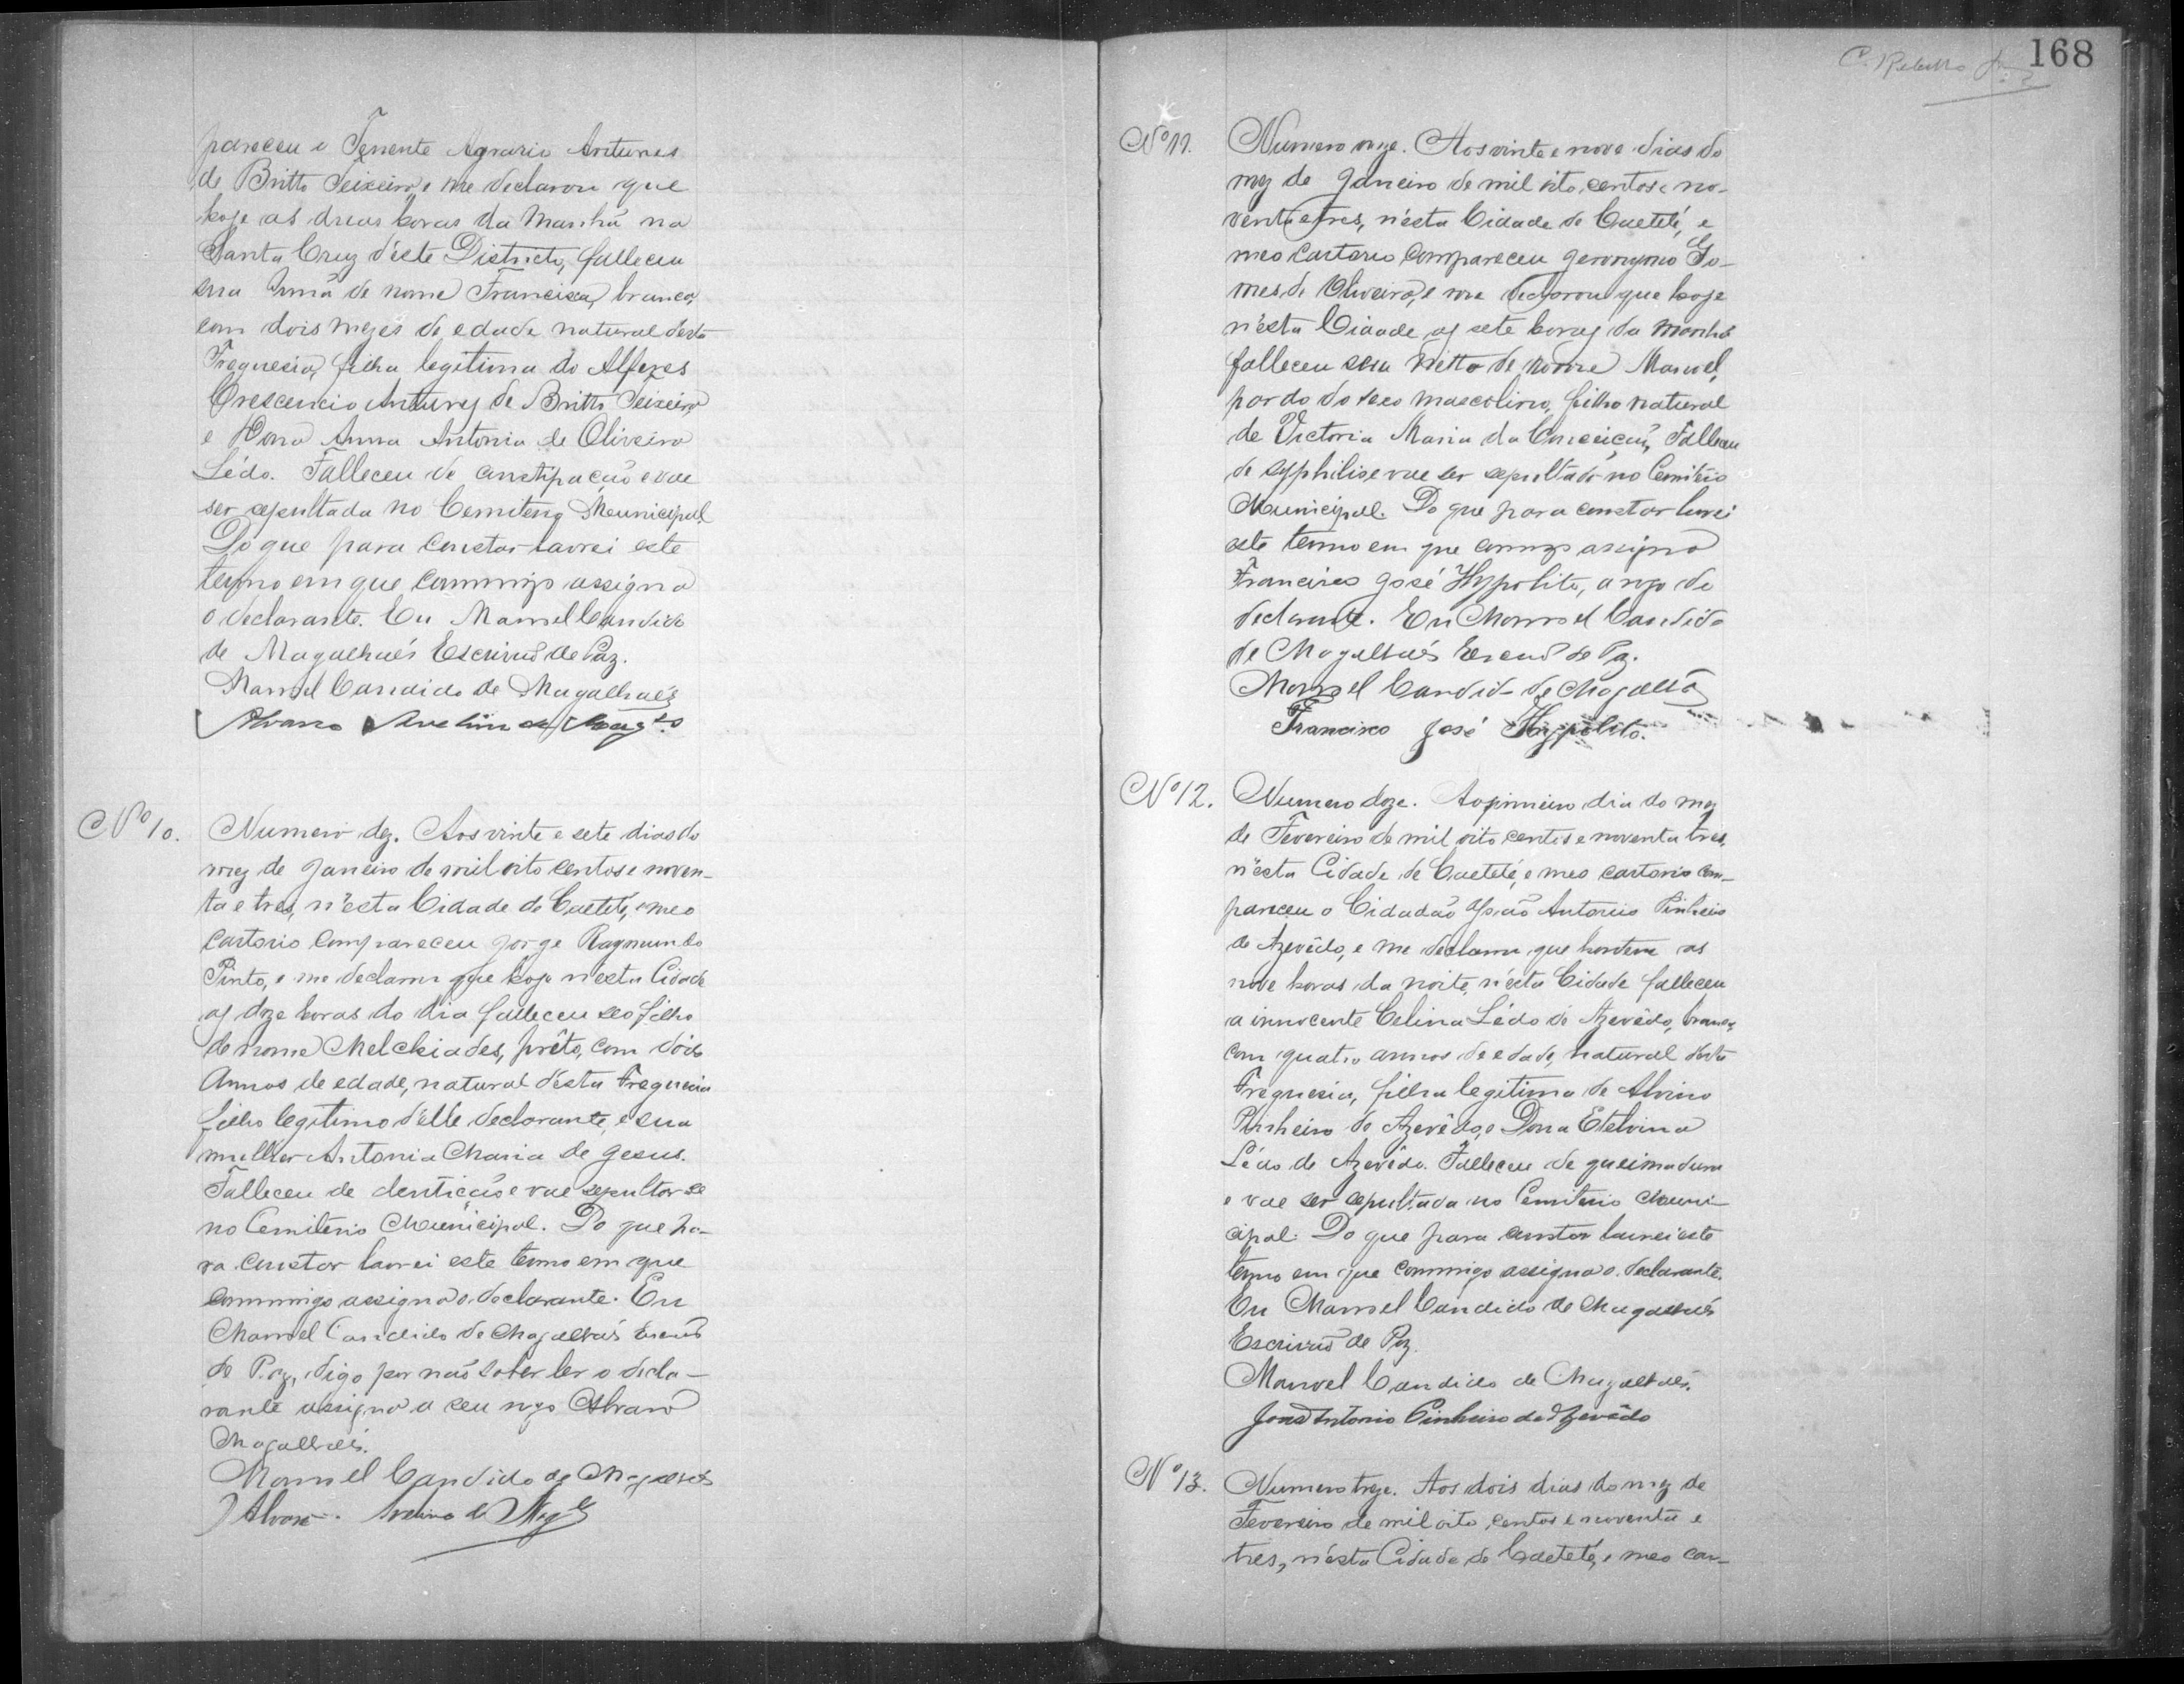 pareceu o Tenente Agrario Antunes
de Britto Teixeira, e me declarou que
hoje as duas horas da manhã na
Santa Cruz d'este Districto, falleceu
sua Irmã de nome Francisca, branca,
com dois mezes de edade natural desta
Freguesia, filha legitima do Alferes
Crescencio Antunes de Britto Teixeira
e Dona Anna Antonia de Oliveira
Lédo. Falleceu de constipação e vae
ser sepultada no Cemiterio Municipal.
Do que para constar lavrei este
termo em que commigo assigna
o declarante. Eu Manoel Candido
de Magalhães Escrivão de Paz.
Manoel Candido de Magalhães
Alvaro Avelino de Mag.es
Nº 10.
Numero dez. Aos vinte e sete dias do
mez de Janeiro de mil oito centos e noven-
ta e tres, n'esta Cidade de Caeteté, e meo
cartorio compareceu Jorge Raymundo
Pinto, e me declarou que hoje n'esta Cidade
as doze horas do dia falleceu seo filho
de nome Melchiades, prêto, com dois
annos de edade, natural d'esta Freguesia
filho legitimo d'elle declarante, e sua
mulher Antonia Maria de Jesus.
Falleceu de dentição e vae sepultar se
no Cemiterio Municipal. Do que pa-
ra constar lavrei este termo em que
commigo assigna o declarante. Eu
Manoel Candido de Magalhães Escrivão
de Paz, digo por não saber ler o decla-
rante assigna a seu rogo Alvaro
Magalhães.
Manoel Candido de Magalhães
Alvaro Avelino de Mag.es
168
Nº 11.
Numero onze. Aos vinte e nove dias do
mez de Janeiro de mil oito centos e no-
venta e tres, n'esta Cidade de Caeteté, e
meo cartorio compareceu Geronymo Go-
mes de Oliveira, e me declarou que hoje
n'esta Cidade as sete horas da manhã
falleceu seu netto de nome Manoel,
pardo do sexo mascolino, filho natural
de Victoria Maria da Conceição, Falleceu
de syphilis e vae ser sepultado no Cemiterio
Municipal. Do que para constar lavrei
este termo em que commigo assigna
Francisco José Hypolito, a rogo do
declarante. Eu Manoel Candido
de Magalhães Escrivão de Paz.
Manoel Candido de Magalhães
Francisco José Hypolito.
Nº 12.
Numero doze. Ao primeiro dia do mez
de Fevereiro de mil oito centos e noventa tres,
n'esta Cidade de Caeteté, e meo cartorio com-
pareceu o Cidadão João Antonio Pinheiro
de Azevêdo, e me declarou que hontem as
nove horas da noite, n'esta Cidade falleceu
a innocente Celina Lédo de Azevêdo, branca,
com quatro annos de edade, natural desta
Freguesia, filha legitima de Alvino
Pinheiro de Azevêdo, e Dona Etelvina
Lédo de Azevêdo. Falleceu de queimadura
e vae ser sepultada no Cemiterio Muni-
cipal. Do que para constar lavrei este
termo em que commigo assigna o declarante.
Eu Manoel Candido de Magalhães
Escrivão de Paz.
Manoel Candido de Magalhães.
João Antonio Pinheiro de Azevêdo
Nº 13.
Numero treze. Aos dois dias do mez de
Fevereiro de mil oito centos e noventa e
tres, n'esta Cidade de Caeteté, e meo car-